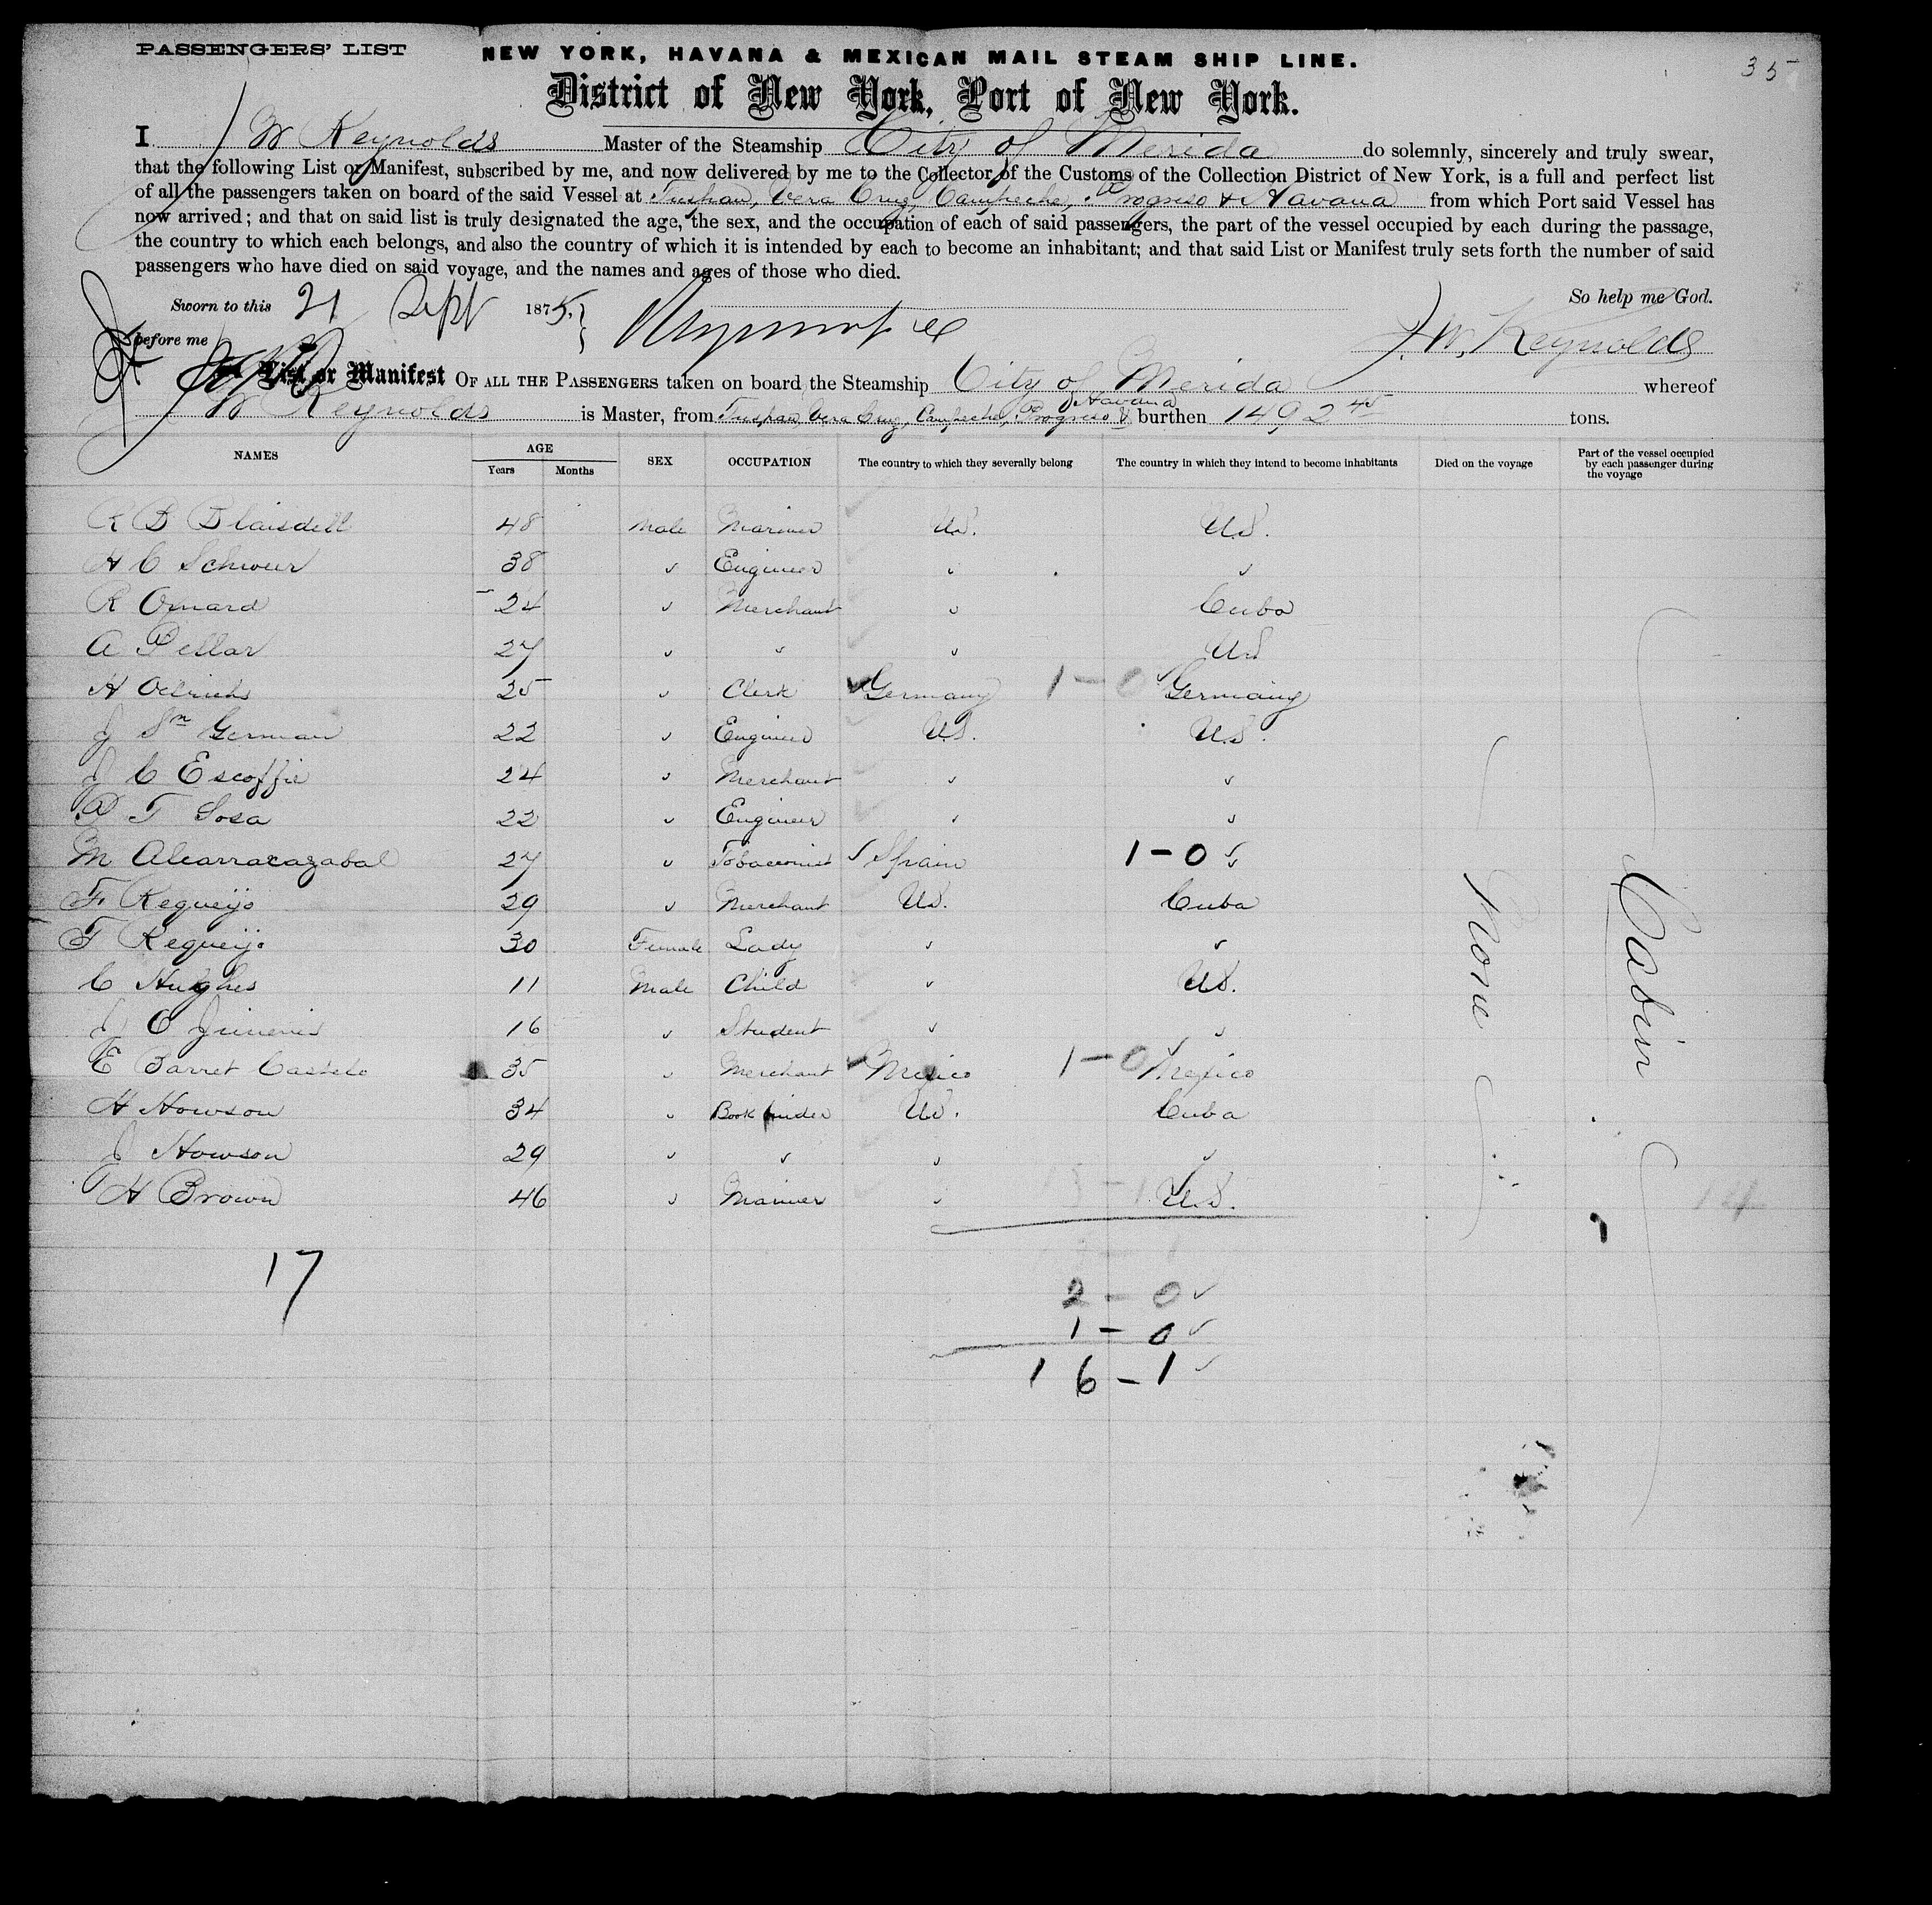 PASSENGERS' LIST NEW YORK, HAVANA & MEXICAN MAIL STEAM SHIP LINE. 35
District of New York, Port of New York.
I J W Reynolds Master of the Steamship City of Merida do solemnly, sincerely and truly swear,
that the following List or Manifest, subscribed by me, and now delivered by me to the Collector of the Customs of the Collection District of New York, is a full and perfect list
of all the passengers taken on board of the said Vessel at Tuspan, Vera Cruz, Campeche, Progreso & Havana from which Port said Vessel has
now arrived; and that on said list is truly designated the age, the sex, and the occupation of each of said passengers, the part of the vessel occupied by each during the passage,
the country to which each belongs, and also the country of which it is intended by each to become an inhabitant; and that said List or Manifest truly sets forth the number of said
passengers who have died on said voyage, and the names and ages of those who died.
So help me God.
Sworn to this 21 Sept 1875,
before me J. W. Reynolds
List or Manifest OF ALL THE PASSENGERS taken on board the Steamship City of Merida whereof
J W Reynolds is Master, from Tuspan, Vera Cruz, Campeche, Progreso & Havana burthen 1492 45 tons.
NAMES AGE Years Months SEX OCCUPATION The country to which they severally belong The country in which they intend to become inhabitants Died on the voyage Part of the vessel occupied by each passenger during the voyage
R B Blaisdell 48 Male Mariner U.S. U.S.
H C Schwur 38 " Engineer " "
R 24 " Merchant " Cuba
A Pellar 27 " " " US
H Oelrichs 25 " Clerk Germany 1-0 Germany
J Sn German 22 " Engineer U.S. U.S.
J C Escoffie 24 " Merchant " "
P T Sosa 22 " Engineer " "
M Alcarrazagabal 27 " Tobacconist Spain 1-0 "
F Requeijo 29 " Merchant U.S. Cuba
F Requeijo 30 Female Lady " "
C Hughes 11 Male Child " U.S.
J C Jimenis 16 " Student " "
E Barret Castelo 35 " Merchant Mexico 1-0 Mexico
H Howson 34 " Book binder U.S. Cuba
J Howson 29 " " " "
H Brown 46 " Mariner " U.S.
None
Cabin
14
17
2-0
1-0
16-1